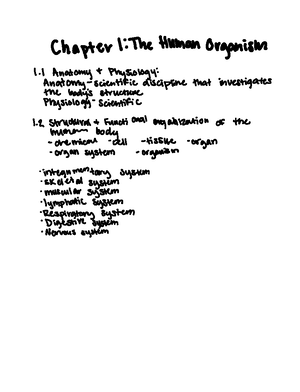 Chapter 1: The Human Organism
1.1 Anatomy + Physiology:
Anatomy - scientific discipline that investigates
the body's structure
Physiology - Scientific
1.2 Structural + Functional organization of the
human body
- chemical - cell - tissue - organ
- organ system - organism
· integumentary system
· skeletal system
· muscular system
· lymphatic system
· Respiratory system
· Digestive system
· Nervous system